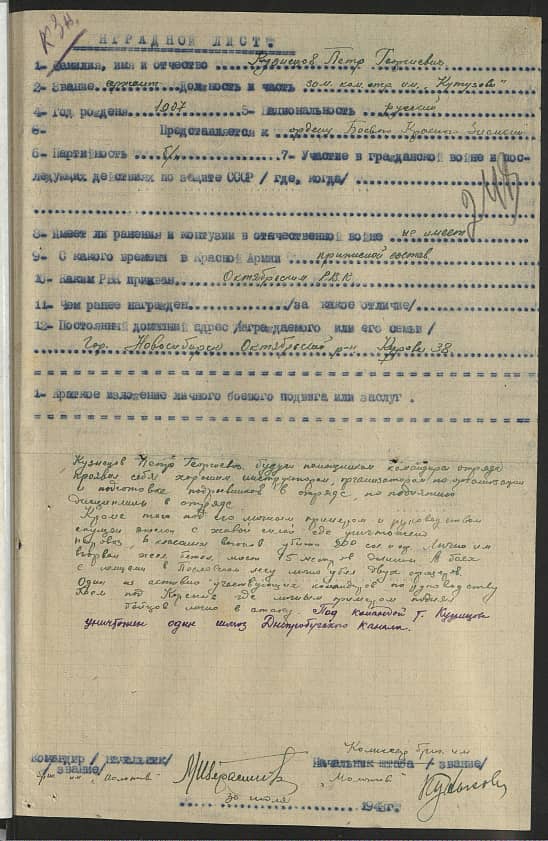 к Зн.
НГРАДНОЙ ЛИСТ.
1- Фамилия, имя и отчество Кузнецов Петр Георгиевич
2- Звание сержант Должность и часть зам. ком. отр им. "Кутузова"
4- Год рождения 1907 5- Национальность русский
6- Представляется к ордену Боевого Красного Знамени
6- Партийность б/п 7- Участие в гражданской войне и пос-
ледующих действиях по защите СССР / где, когда/
8- Имеет ли ранения и контузии в отечественной войне не имеет
9- С какого времени в Красной Армии приписной состав
10- Каким РВК призван Октябрьским РВК
11- Чем ранее награжден /за какое отличие/
12- Постоянный домашний адрес /награждаемого или его семьи/
Гор. Новосибирск Октябрьский р-н Кирова 38
1- Краткое изложение личного боевого подвига или заслуг.
Кузнецов Петр Георгиевич будучи помощником командира отряда
проявил себя хорошим инструктором, организатором по организации
и подготовке подрывников в отряде, по поднятию
дисциплины в отряде.
Кроме того под его личным примером и руководством
спущен эшелон с живой силой где уничтожен
паровоз, вагонов убито 200 сол и оф. Лично им
взорван жел. бетон. мост 15 метров длинны. В боях
с немцами в лесу лично убил двух офицеров.
Один из активно участвующих командиров по руководству
боем под где личным примером поднял
бойцов лично в атаку. Под командой т. Кузнецова
уничтожен один шлюз Днепробугского канала.
Командир /начальник/ Комиссар бриг. им
/звание/ Начальник штаба /звание/
бриг. им. "Молотов"
30 июля 194 г.